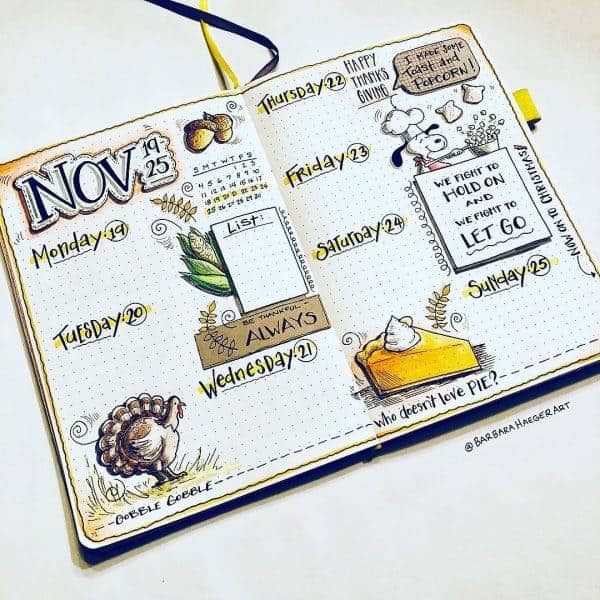 NOV 19
25
S M T W T F S
1 2 3
4 5 6 7 8 9 10
11 12 13 14 15 16 17
18 19 20 21 22 23 24
25 26 27 28 29 30
Monday·19
List:
TUESDAY·20
BE THANKFUL -
ALWAYS
Wednesday·21
GOBBLE GOBBLE
Thursday·22
HAPPY
THANKS
GIVING
I MADE SOME
TOAST AND
POPCORN!
Friday·23
WE FIGHT TO
HOLD ON
AND
WE FIGHT TO
LET GO
Saturday·24
NOW ON TO CHRISTMAS!
Sunday·25
who doesn't love PIE?
@BARBARAHAEGERART